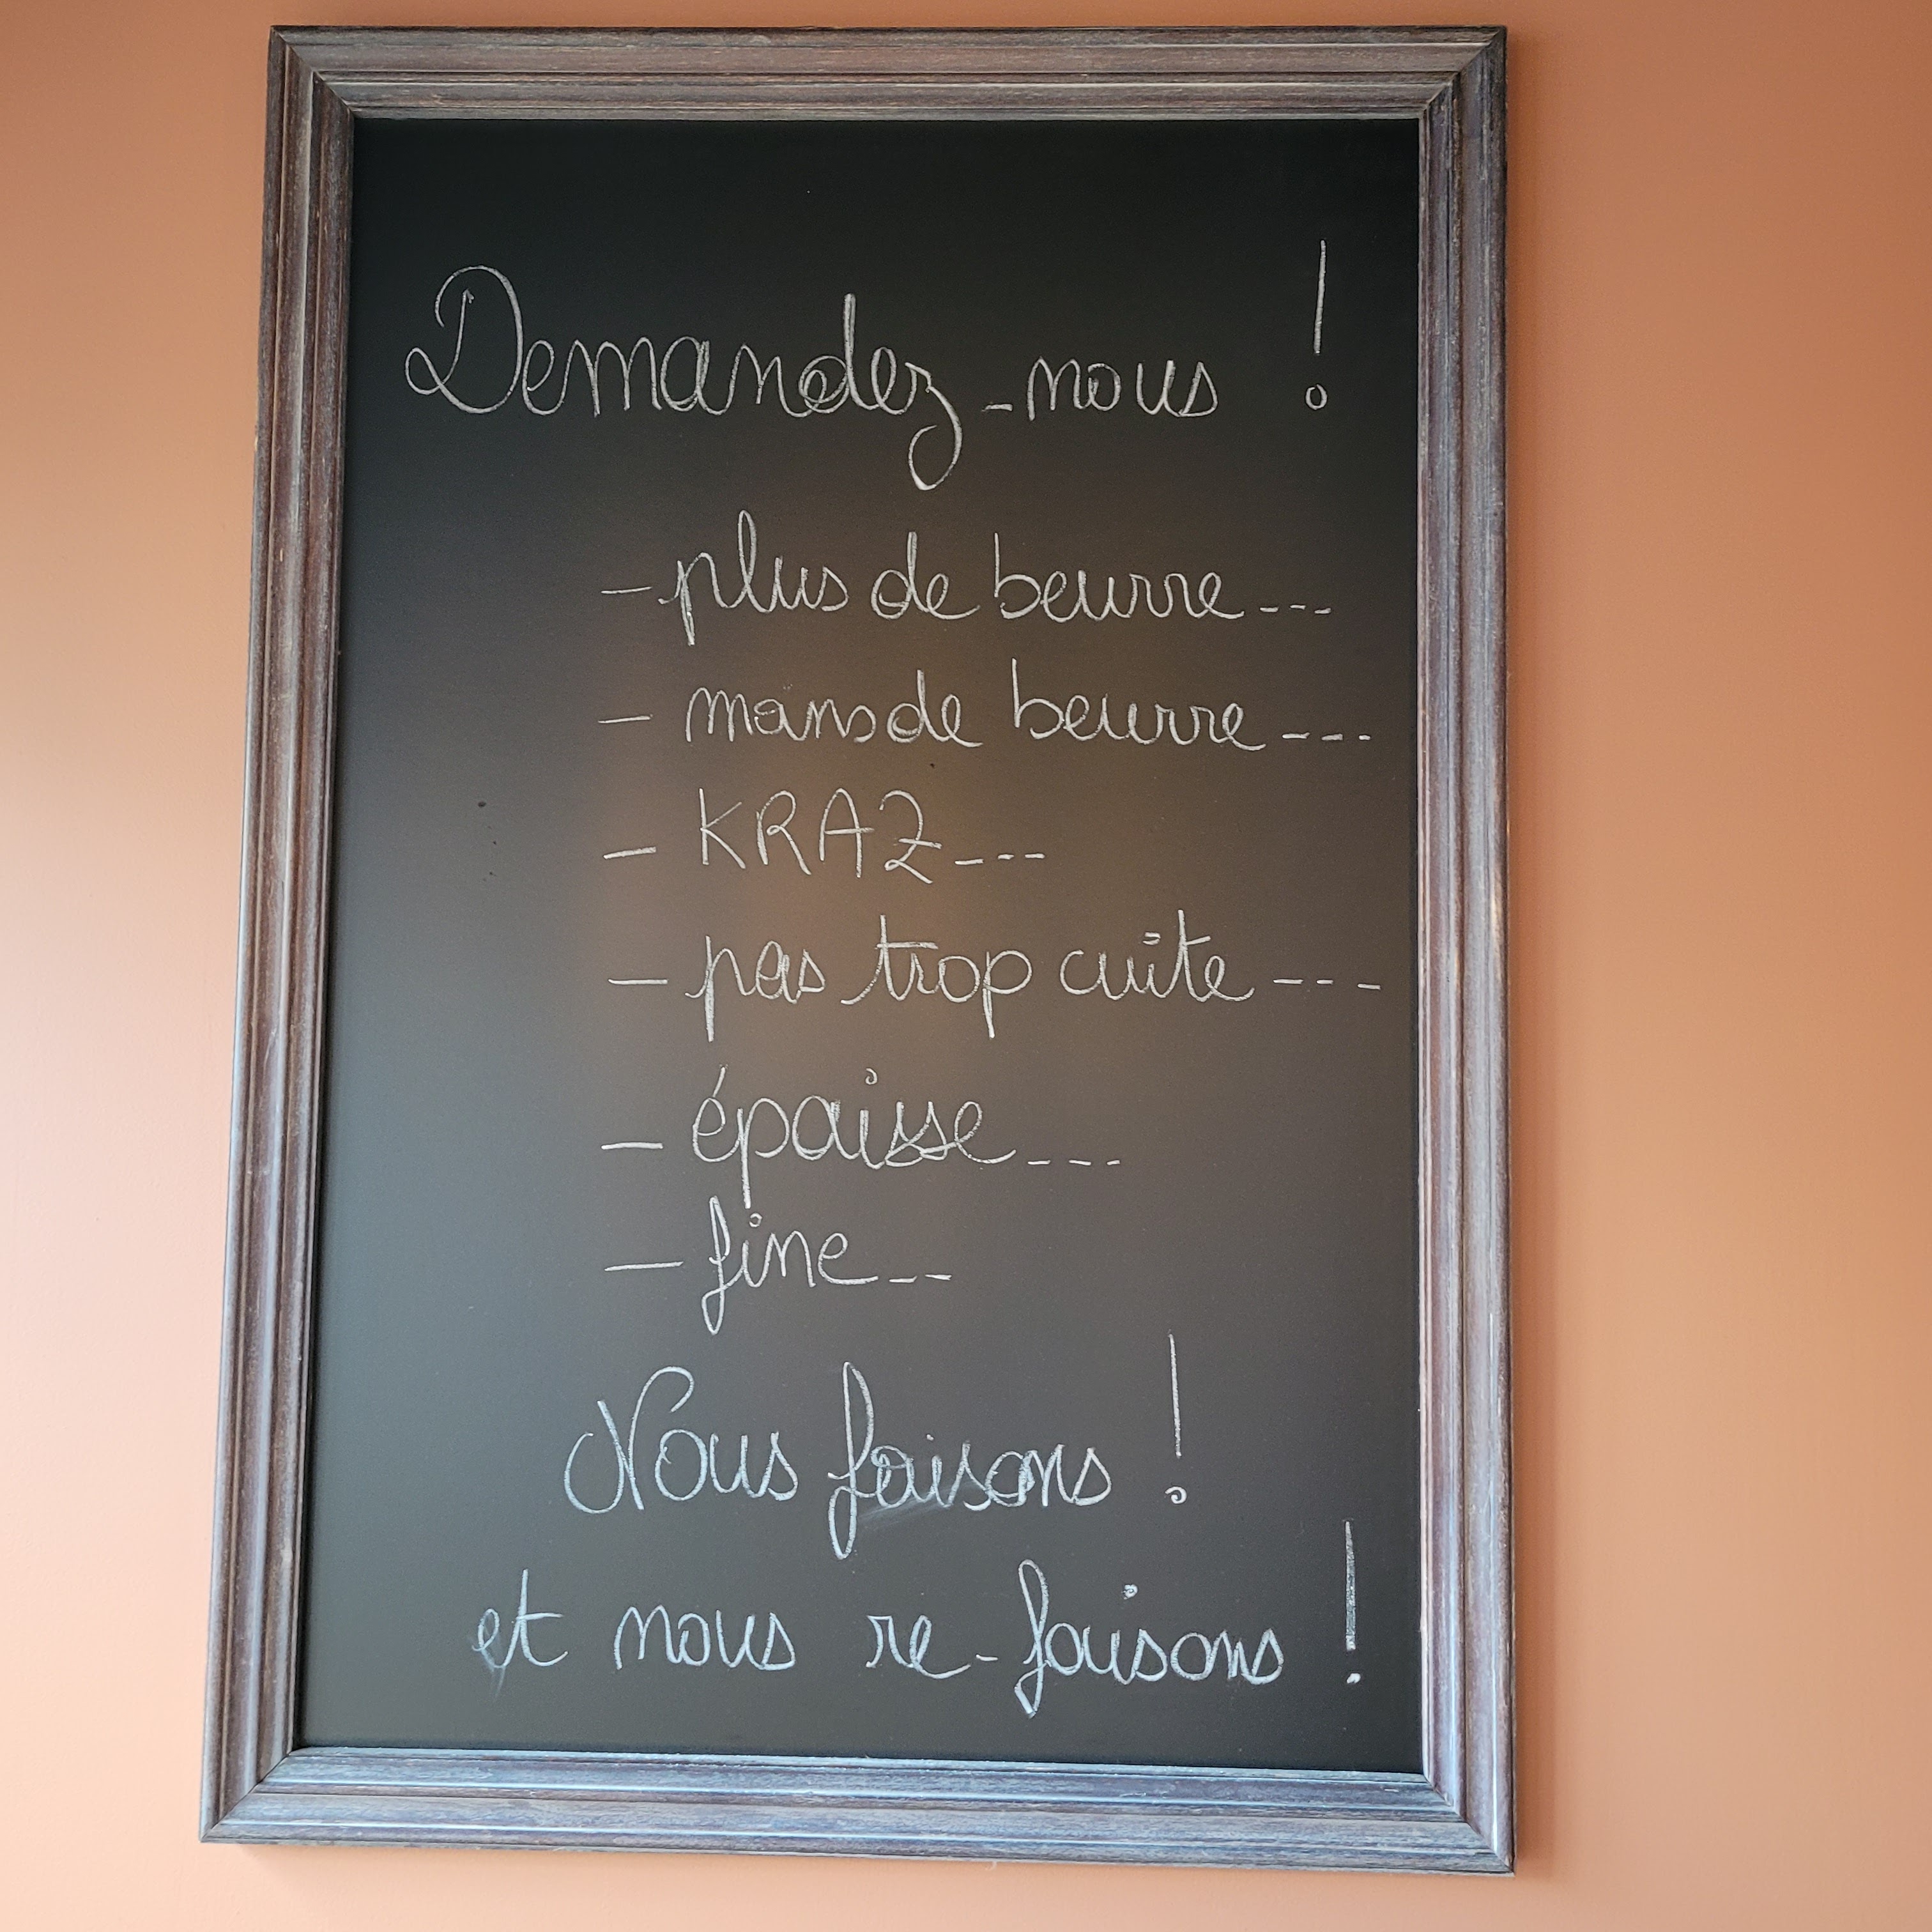 Demandez-nous !
- plus de beurre---
- moins de beurre---
- KRAZ---
- pas trop cuite---
- épaisse---
- fine--
Nous faisons !
et nous re-faisons !